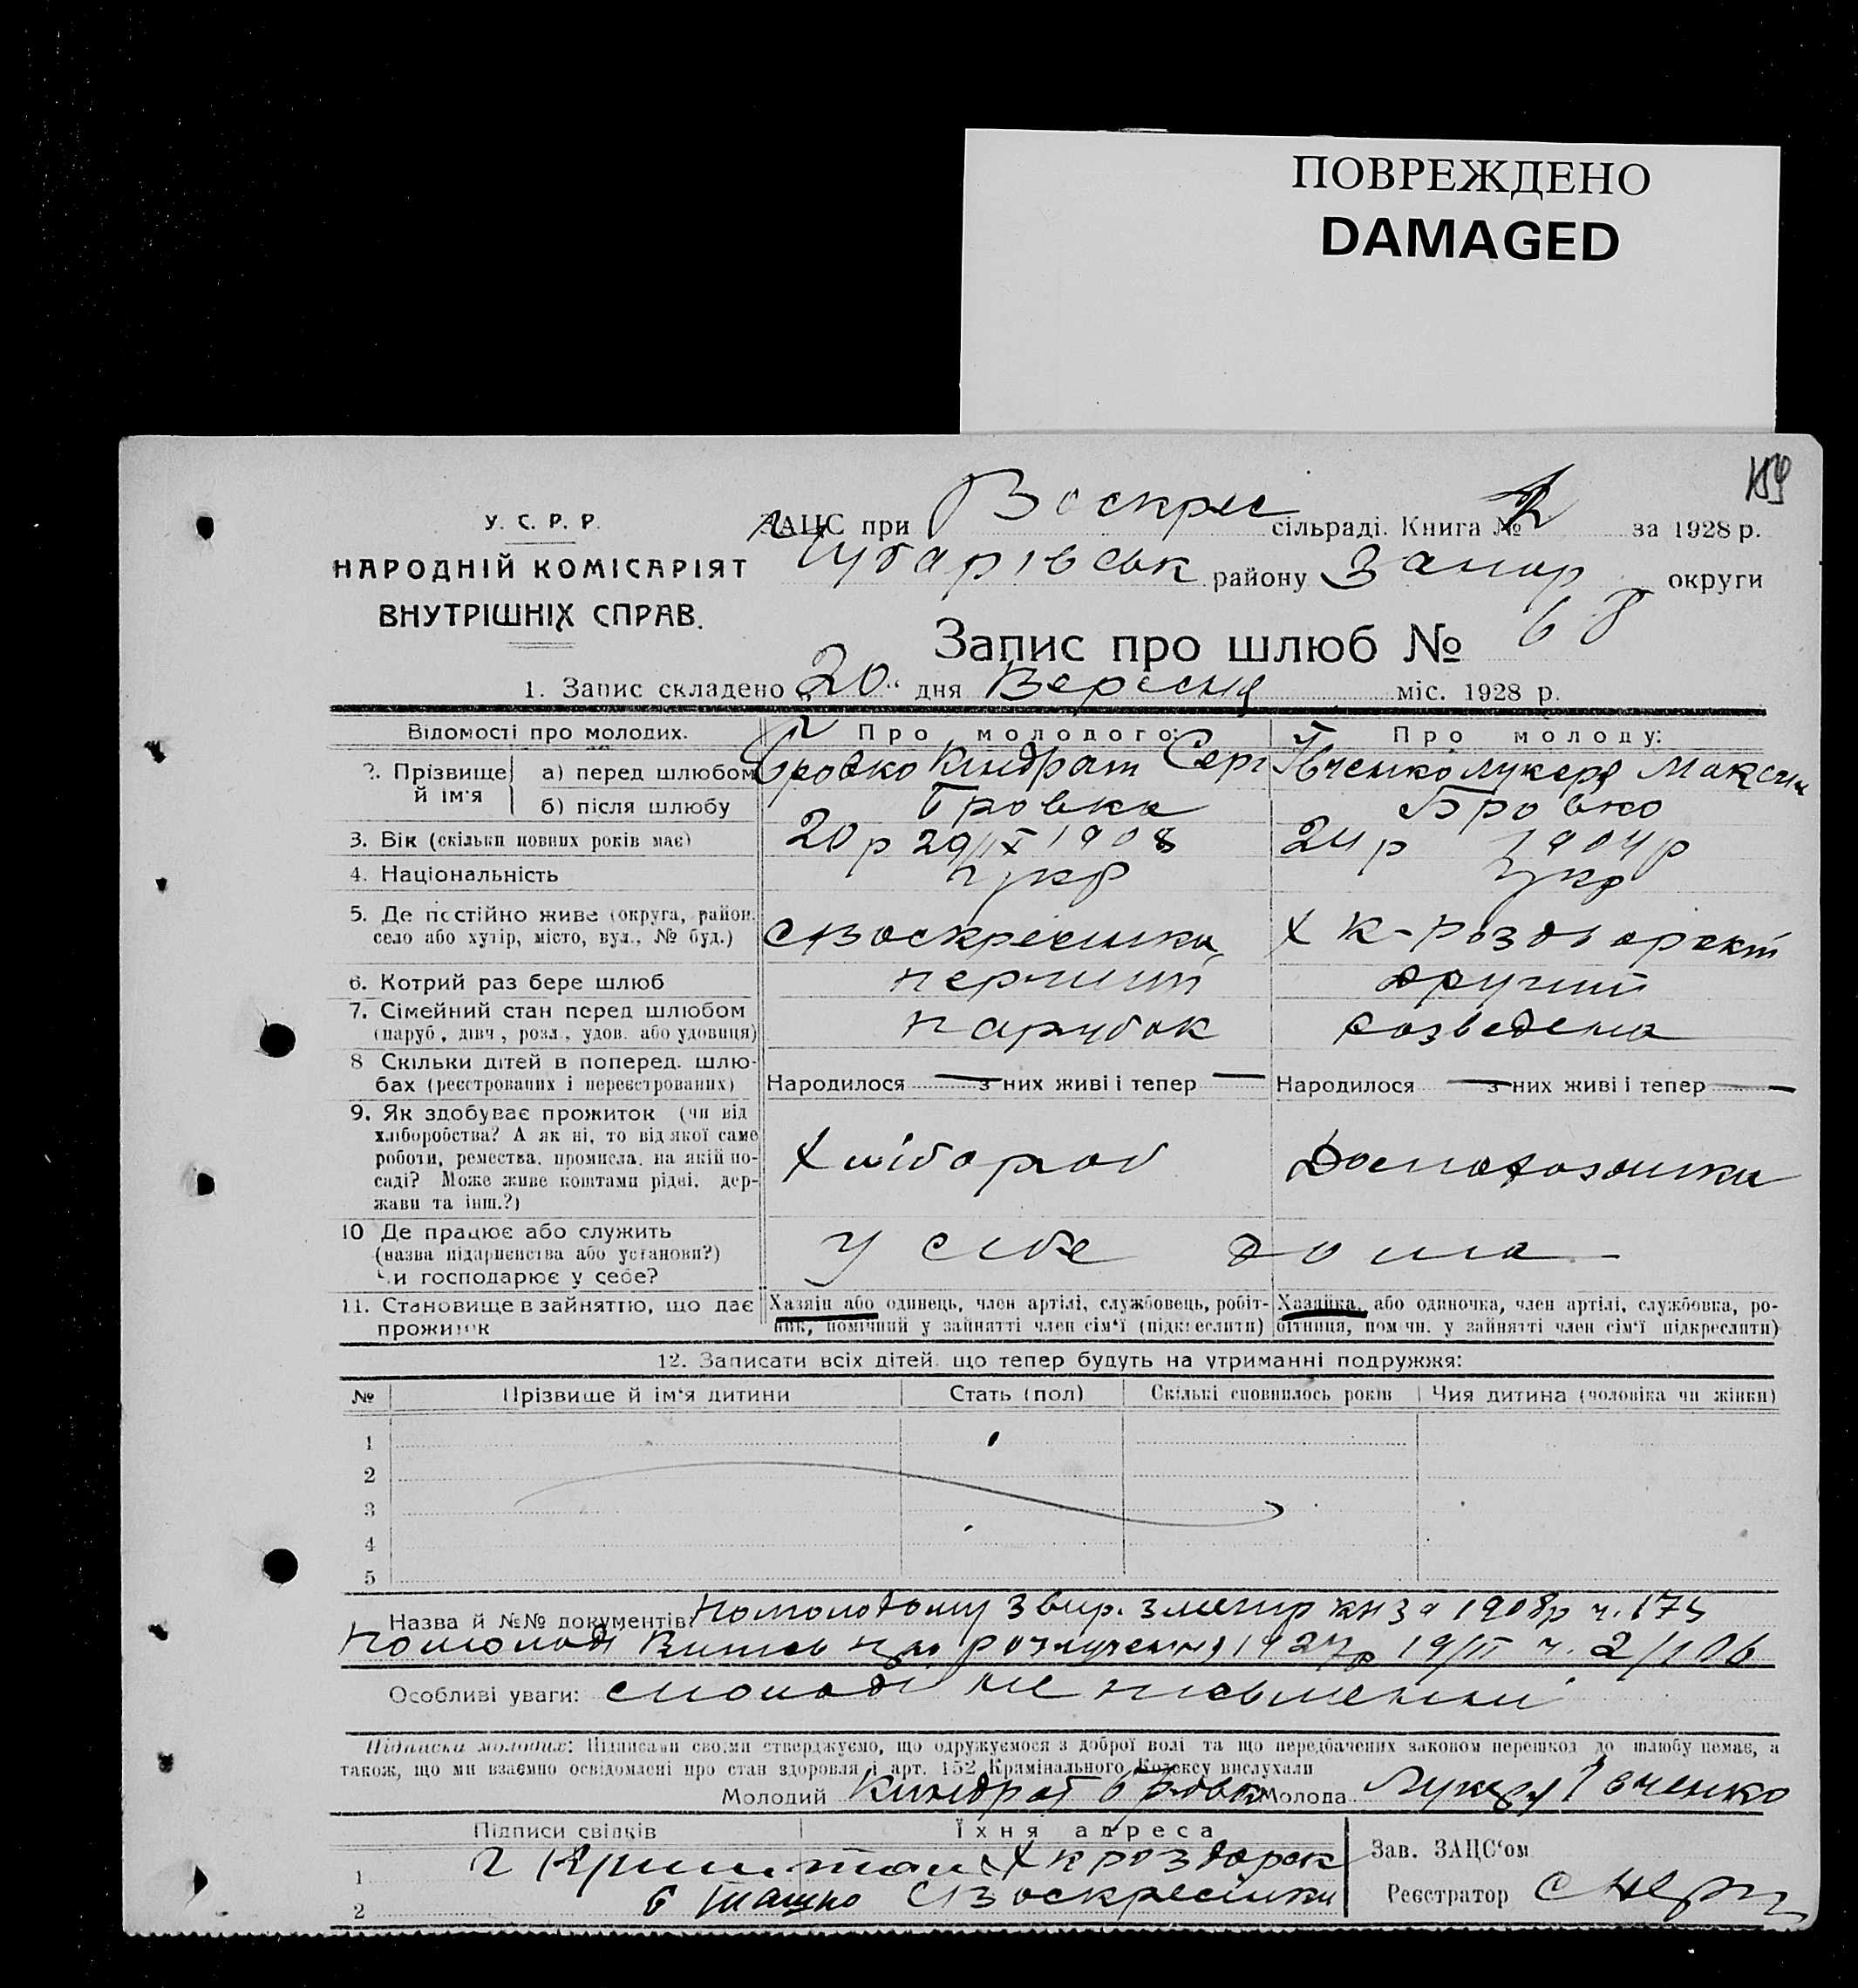 ПОВРЕЖДЕНО
DAMAGED
У. С. Р. Р.
НАРОДНІЙ КОМІСАРІЯТ
ВНУТРІШНІХ СПРАВ.
ЗАЦС при Воскрес сільраді. Книга № за 1928 р.
Чубарівськ району Запор округи
Запис про шлюб № 68
1. Запис складено „20“ дня Вересня міс. 1928 р.
Відомості про молодих. Про молодого: Про молоду:
2. Прізвище й ім'я а) перед шлюбом Бровко Киндрат Серг Івченко Лукеря Максим
б) після шлюбу Бровко Бровко
3. Вік (скільки повних років має) 20 р 29/IX 1908 24 р 1904 р
4. Національність Укр Укр
5. Де постійно живе (округа, район.
село або хутір, місто, вул., № буд.) с Воскресинка х К-роздор
6. Котрий раз бере шлюб перший другий
7. Сімейний стан перед шлюбом
(паруб, дівч, розл., удов. або удовиця) парубок розведена
8 Скільки дітей в поперед. шлю-
бах (реєстрованих і нереєстрованих) Народилося — з них живі і тепер — Народилося — з них живі і тепер —
9. Як здобуває прожиток (чи від
хліборобства? А як ні, то від якої саме
роботи, ремества, промисла, на якій по-
саді? Може живе коштами рідні, дер-
жави та інш.?) Хлібороб Домохозяйка
10 Де працює або служить
(назва підприємства або установи?)
Чи господарює у себе? У себе дома
11. Становище в зайняттю, що дає
прожиток
Хазяїн або одинець, член артілі, службовець, робіт-
ник, помічний у зайнятті член сім'ї (підкреслити)
Хазяйка, або одиночка, член артілі, службовка, ро-
бітниця, помічн. у зайнятті член сім'ї підкреслити)
12. Записати всіх дітей, що тепер будуть на утриманні подружжя:
№ Прізвище й ім'я дитини Стать (пол) Скількі сповнилось років Чия дитина (чоловіка чи жінки)
1
2
3
4
5
Назва й №№ документів: По молодому з вир. з метр кн за 1908 р ч. 175
По молоді Витяг про розлучення 1927 р 19/II ч. 2/106
Особливі уваги: молоді не письменні
Підписки молодих: Підписами своїми стверджуємо, що одружуємося з доброї волі та що передбачених законом перешкод до шлюбу немає, а
також, що ми взаємно освідомлені про стан здоровля і арт. 152 Крамінального Кодексу вислухали
Молодий Киндрат Бровко Молода Лукеря Івченко
Підписи свідків Їхня адреса
1 х К роздорск
2 с Воскресинки
Зав. ЗАЦС'ом
Реєстратор